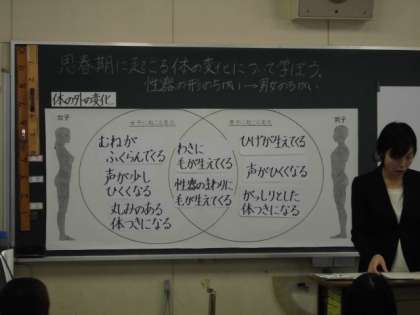 思春期に起こる体の変化について学ぼう。
性器の形のちがい→男女のちがい
体の外の変化
女子
女子に起こる変化
男子に起こる変化
男子
むねが
ふくらんでくる
声が少し
ひくくなる
丸みのある
体つきになる
わきに
毛が生えてくる
性器のまわりに
毛が生えてくる
ひげが生えてくる
声がひくくなる
がっしりとした
体つきになる